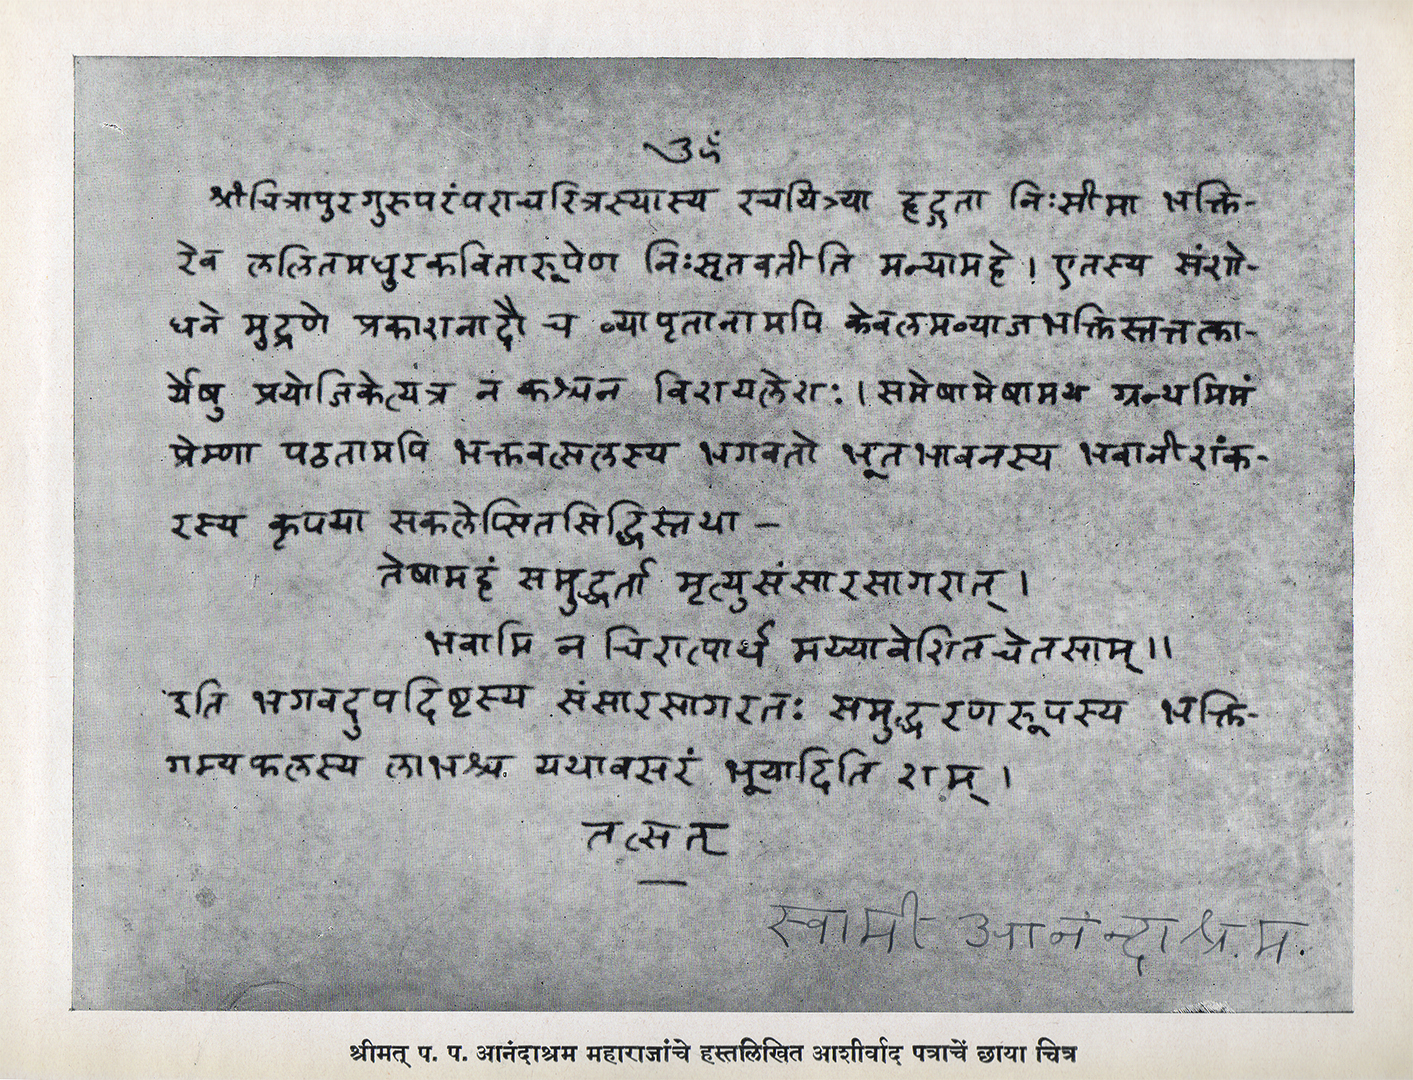 ॐ
श्रीचित्रापुरगुरुपरंपराचरित्रस्यास्य रचयित्र्या हृद्गता निःसीमा भक्ति-
रेव ललितमधुरकवितारूपेण निःसृतवतीति मन्यामहे। एतस्य संशो-
धने मुद्रणे प्रकाशनादौ च व्यापृतानामपि केवलमव्याजभक्तिस्तत्तत्का-
र्येषु प्रयोजिकेत्यत्र न कश्चन विशयलेशः। समेषामेषामथ ग्रन्थमिमं
प्रेम्णा पठतामपि भक्तवत्सलस्य भगवतो भूतभावनस्य भवानीशंक-
रस्य कृपया सकलेप्सितसिद्धिस्तथा —
तेषामहं समुद्धर्ता मृत्युसंसारसागरात्।
भवामि न चिरात्पार्थ मय्यावेशितचेतसाम्॥
इति भगवदुपदिष्टस्य संसारसागरतः समुद्धरणरूपस्य भक्ति-
गम्यफलस्य लाभश्च यथावसरं भूयादिति शम्।
तत्सत्
स्वामी आनन्दाश्रम.
श्रीमत् प. प. आनंदाश्रम महाराजांचे हस्तलिखित आशीर्वाद पत्राचें छाया चित्र